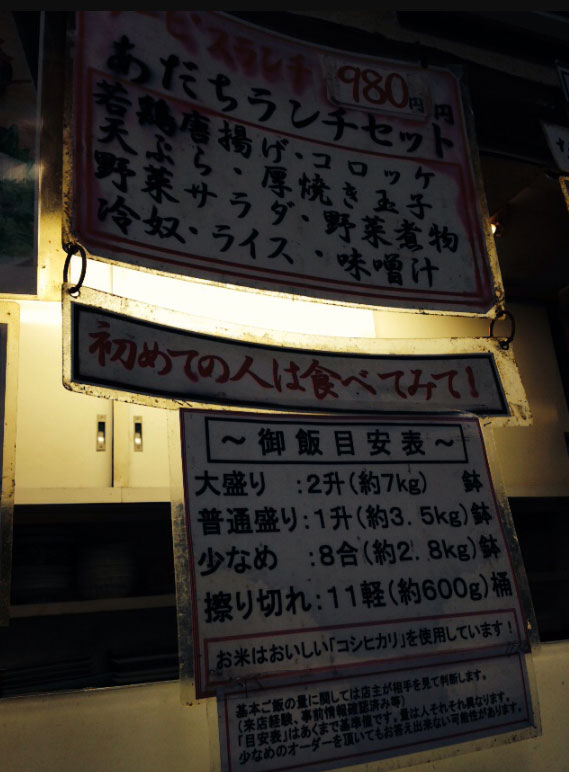 ービスランチ
980円 円
あだちランチセット
若鶏唐揚げ・コロッケ
天ぷら・厚焼き玉子
野菜サラダ・野菜煮物
冷奴・ライス・味噌汁
初めての人は食べてみて!
～御飯目安表～
大盛り :2升(約7kg) 鉢
普通盛り:1升(約3.5kg)鉢
少なめ :8合(約2.8kg)鉢
擦り切れ:11軽(約600g)桶
お米はおいしい「コシヒカリ」を使用しています!
基本ご飯の量に関しては店主が相手を見て判断します。
(来店経験、事前情報確認済み等)
「目安表」はあくまで基準値です。量は人それぞれ異なります。
少なめのオーダーを頂いてもお答え出来ない可能性があります。